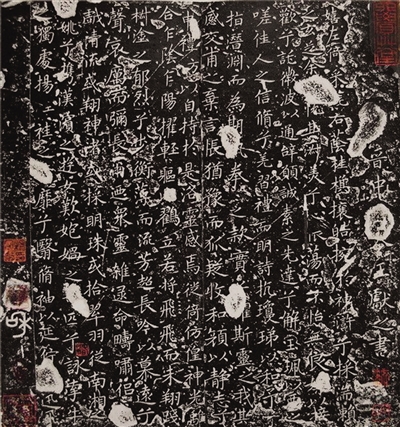 晉中令獻之書
嬉左倚采右蔭桂旗攘皓腕於神滸兮採湍瀨
之玄芝余美兮心振蕩而不怡無良接
歡兮託微波以通辭願誠素之先達兮解玉珮以
嗟佳人之信脩兮羌習禮而明詩抗瓊珶以和予兮
指潛淵而為期執拳之款實兮懼斯靈之我欺
感交甫之棄言悵猶豫而狐疑收和顏以靜志兮
申禮防以自持於是洛靈感焉徙倚仿偟神光離
合乍陰乍陽擢輕軀以鶴立若將飛而未翔踐
椒途之郁烈兮步衡薄而流芳超長吟以慕遠兮
聲哀厲而彌長爾迺衆靈雜遝命疇嘯侶
戲清流或翔神渚或採明珠或拾翠羽從南湘之
姚兮攜漢濱之遊女歎匏媧之無匹兮詠牽牛
之獨處揚輕袿之猗靡兮翳脩袖以延佇迅飛